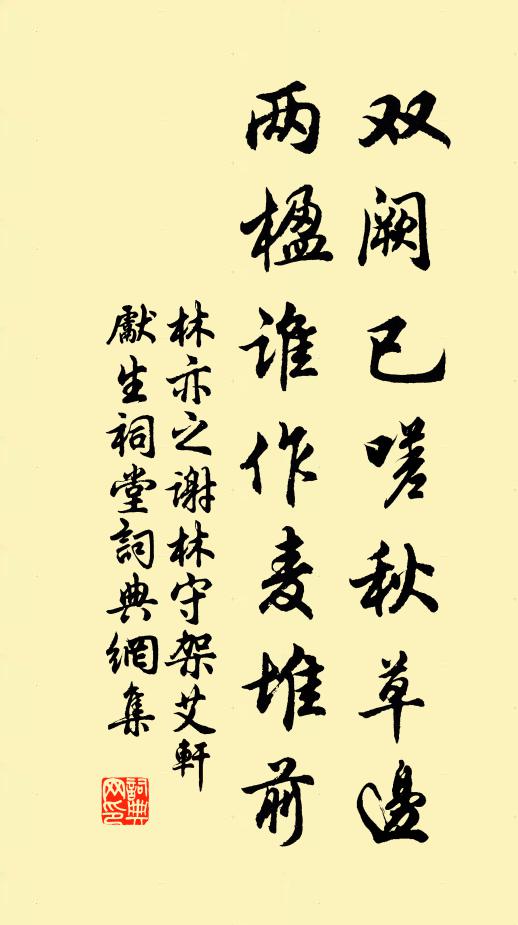 双阙已嗟秋草边
两楹谁作麦堆前
林亦之谢林守架艾軒
獻生祠堂詞典網集
詞典网印